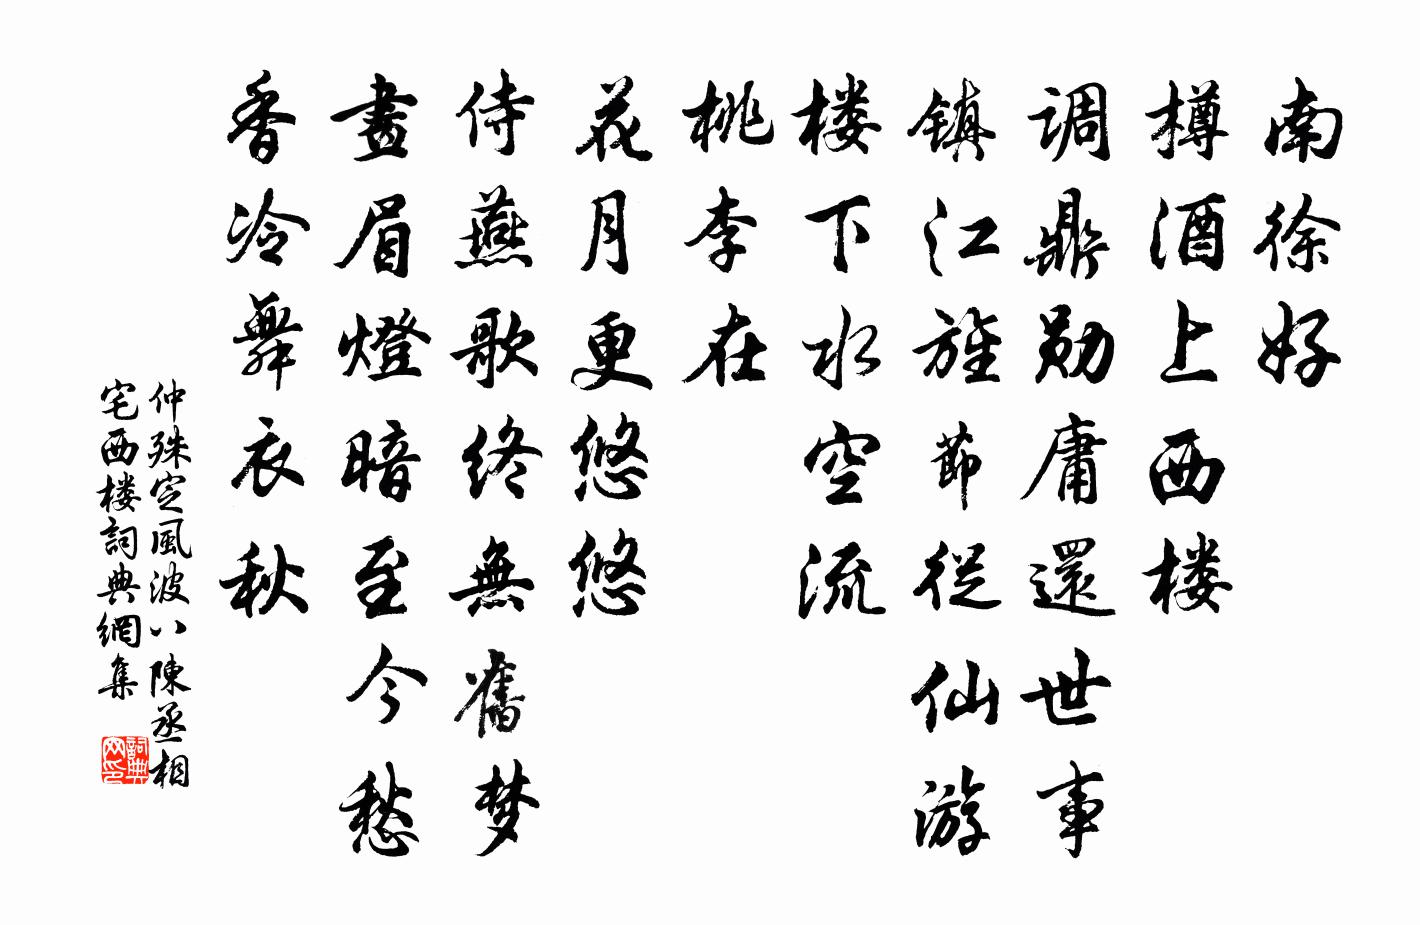 南徐好
樽酒上西楼
调鼎勋庸還世事
镇江旌節從仙游
楼下水空流
桃李在
花月更悠悠
侍燕歌终無舊梦
畫眉燈暗至今愁
香冷舞衣秋
仲殊定風波八陳丞相
宅西楼詞典網集
詞典
网印